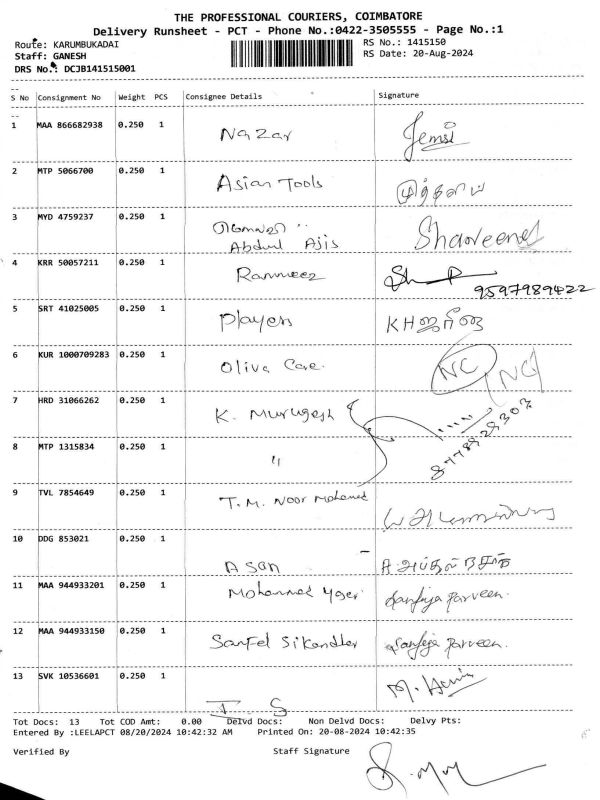 THE PROFESSIONAL COURIERS, COIMBATORE
Delivery Runsheet - PCT - Phone No.:0422-3505555 - Page No.:1
Route: KARUMBUKADAI RS No.: 1415150
Staff: GANESH RS Date: 20-Aug-2024
DRS No.: DCJB141515001
S No Consignment No Weight PCS Consignee Details Signature
1 MAA 866682938 0.250 1 Nazar Jemsi
2 MTP 5066700 0.250 1 Asian Tools
3 MYD 4759237 0.250 1
Abdul Ajis
4 KRR 50057211 0.250 1 Rammeez
9597989422
5 SRT 41025005 0.250 1 Players
6 KUR 1000709283 0.250 1 Oliva Care. NC NC
7 HRD 31066262 0.250 1 K. Murugesh
8 MTP 1315834 0.250 1 "
9 TVL 7854649 0.250 1 T.M. Noor Mohamed
10 DDG 853021 0.250 1 Asan
11 MAA 944933201 0.250 1 Mohammed Parveen.
12 MAA 944933150 0.250 1 Sikandher Parveen.
13 SVK 10536601 0.250 1 I. S
Tot Docs: 13 Tot COD Amt: 0.00 Delvd Docs: Non Delvd Docs: Delvy Pts:
Entered By :LEELAPCT 08/20/2024 10:42:32 AM Printed On: 20-08-2024 10:42:35
Verified By Staff Signature